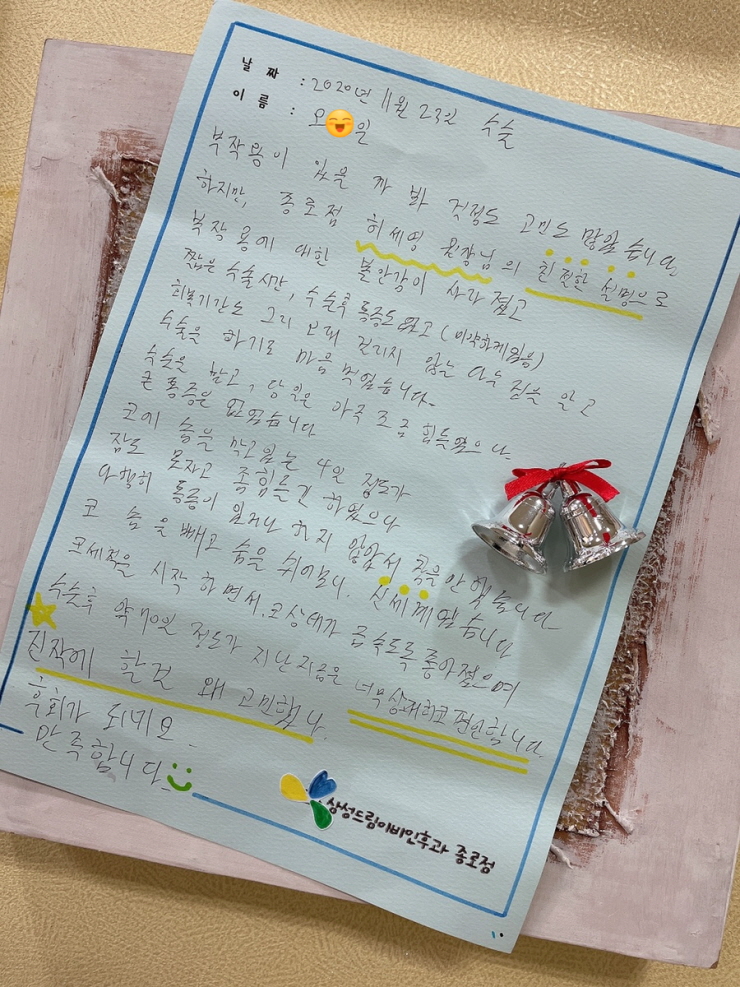 날 짜 : 2020년 11월 23일 수술
이 름 : 오 일
부작용이 있을 까 봐 걱정도 고민도 많았습니다
하지만, 종로점 허세영 원장님의 친절한 설명으로
부작용에 대한 불안감이 사라졌고
짧은 수술시간, 수술후 통증도 없고 (미약하게있음)
회복기간도 그리 오래 걸리지 않는 다는 점을 알고
수술을 하기로 마음 먹었습니다.
수술을 할고, 당일은 아주 조금 힘들었으나
큰 통증은 없었습니다
코에 솜을 막고있는 4일 정도가
잠도 못자고 좀힘들긴 하였으나
다행히 통증이 있거나 하지 않았서 죽을 안 했습니다
코 솜을 빼고 숨을 쉬어보니, 신세계였습니다
코세척을 시작 하면서, 코상태가 급속도록 좋아졌으며
수술후 약 70일 정도가 지난지금은 너무상쾌하고 편안합니다.
진작에 할걸 왜 고민했나.
후회가 되네요.
만족합니다
삼성드림이비인후과 종로점